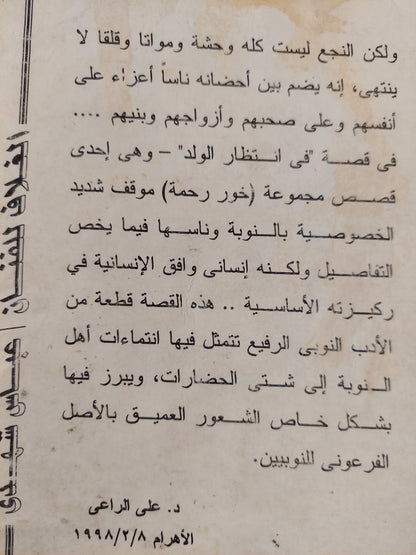 ولكن النجع ليست كله وحشة ومواتا وقلقا لا
ينتهى، إنه يضم بين أحضانه ناساً أعزاء على
أنفسهم وعلى صحبهم وأزواجهم وبنيهم ....
فى قصة "فى انتظار الولد" – وهى إحدى
قصص مجموعة (خور رحمة) موقف شديد
الخصوصية بالنوبة وناسها فيما يخص
التفاصيل ولكنه إنسانى وافق الإنسانية في
ركيزته الأساسية .. هذه القصة قطعة من
الأدب النوبى الرفيع تتمثل فيها انتماءات أهل
النوبة إلى شتى الحضارات، ويبرز فيها
بشكل خاص الشعور العميق بالأصل
الفرعونى للنوبيين.
د. على الراعى
الأهرام ١٩٩٨/٢/٨
الغلاف للفنان / عباس